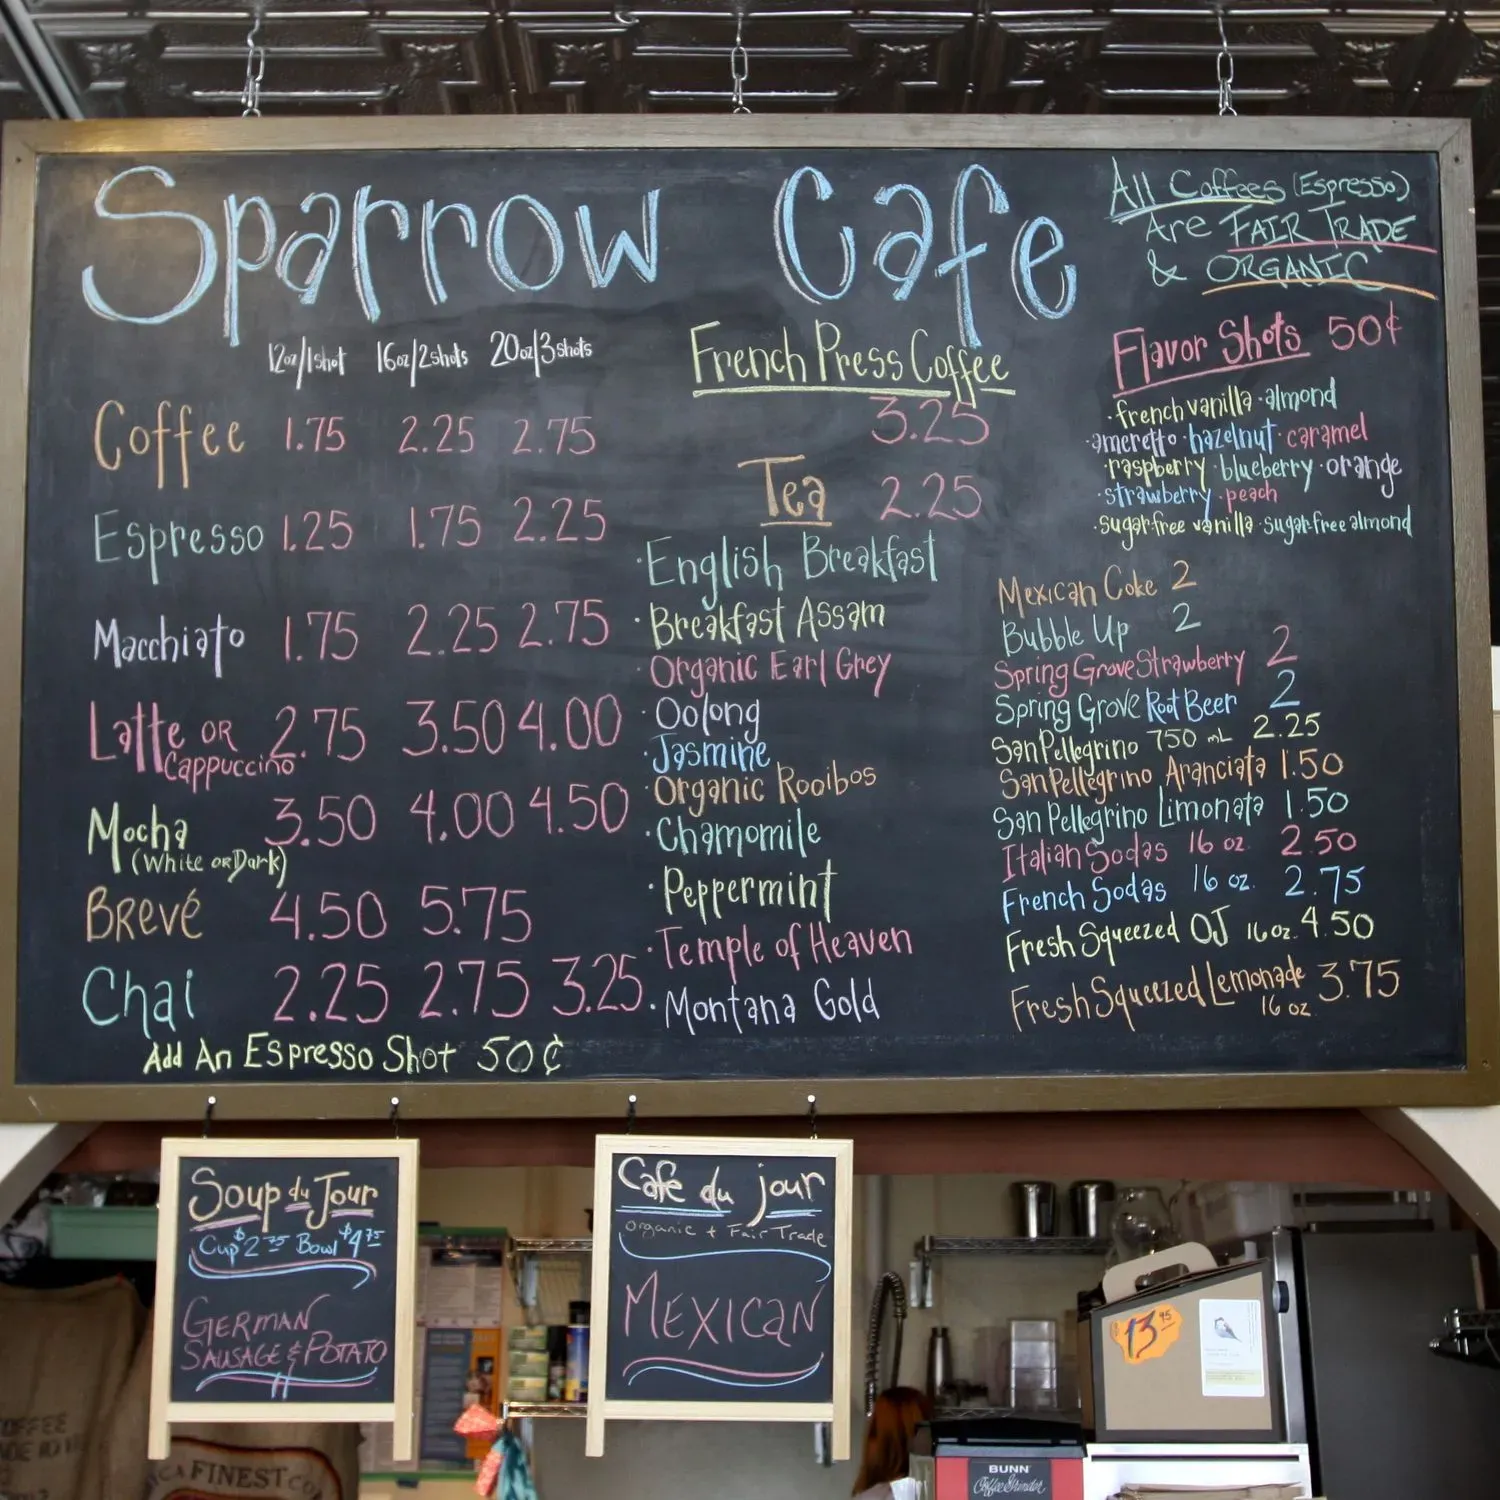 Sparrow Cafe
All Coffees (Espresso)
Are FAIR TRADE
& ORGANIC
12oz/1shot 16oz/2shots 20oz/3shots
Coffee 1.75 2.25 2.75
Espresso 1.25 1.75 2.25
Macchiato 1.75 2.25 2.75
Latte OR Cappuccino 2.75 3.50 4.00
Mocha 3.50 4.00 4.50
(White OR Dark)
Brevé 4.50 5.75
Chai 2.25 2.75 3.25
Add An Espresso Shot 50¢
French Press Coffee
3.25
Tea 2.25
·English Breakfast
·Breakfast Assam
·Organic Earl Grey
·Oolong
·Jasmine
·Organic Rooibos
·Chamomile
·Peppermint
·Temple of Heaven
·Montana Gold
Flavor Shots 50¢
·french vanilla ·almond
·ameretto ·hazelnut ·caramel
·raspberry ·blueberry ·orange
·strawberry ·peach
·sugar-free vanilla ·sugar-free almond
Mexican Coke 2
Bubble Up 2
Spring Grove Strawberry 2
Spring Grove Root Beer 2
San Pellegrino 750 mL 2.25
San Pellegrino Aranciata 1.50
San Pellegrino Limonata 1.50
Italian Sodas 16 oz. 2.50
French Sodas 16 oz. 2.75
Fresh Squeezed OJ 16 oz. 4.50
Fresh Squeezed Lemonade 3.75
16 oz
Soup du Jour
Cup $2.75 Bowl $4.75
GERMAN
SAUSAGE & POTATO
Café du jour
Organic + Fair Trade
MEXICAN
$13.95
BUNN
Coffee Grinder
FINEST